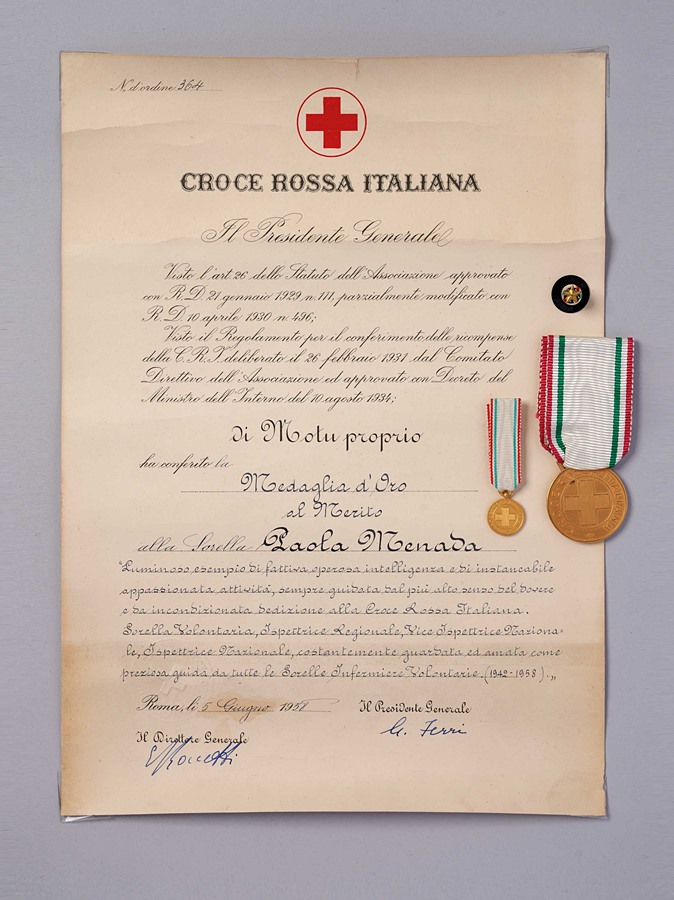 N. d'ordine 364
CROCE ROSSA ITALIANA
Il Presidente Generale
Visto l'art. 26 dello Statuto dell'Associazione approvato
con R.D. 21 gennaio 1929 n. 111, parzialmente modificato con
R.D. 10 aprile 1930 n. 496;
Visto il Regolamento per il conferimento delle ricompense
della C.R.I. deliberato il 26 febbraio 1931 dal Comitato
Direttivo dell'Associazione ed approvato con Decreto del
Ministro dell'Interno del 10 agosto 1934;
di Motu proprio
ha conferito la
Medaglia d'Oro
al Merito
alla Sorella Paola Menada
"Luminoso esempio di fattiva operosa intelligenza e di instancabile
appassionata attività, sempre guidata dal più alto senso del dovere
e da incondizionata dedizione alla Croce Rossa Italiana.
Sorella Volontaria, Ispettrice Regionale, Vice Ispettrice Naziona=
le, Ispettrice Nazionale, costantemente guardata ed amata come
preziosa guida da tutte le Sorelle Infermiere Volontarie. (1942-1958).„
Roma, li 5 Giugno 1958
Il Presidente Generale
G. Ferri
Il Direttore Generale